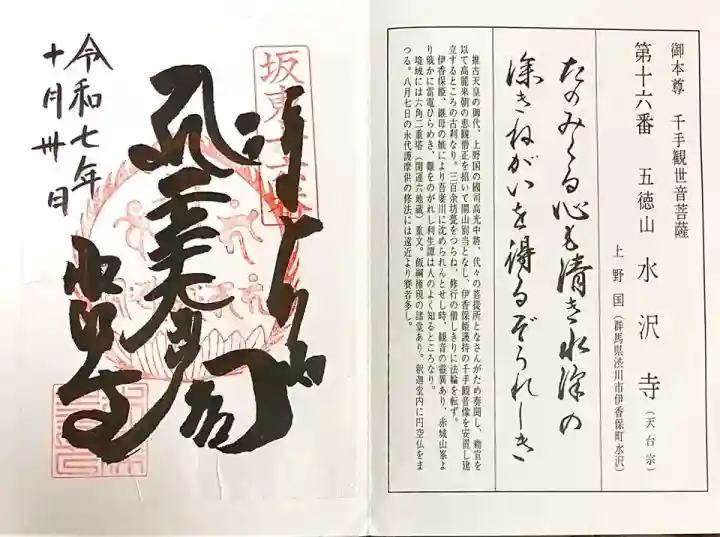 御本尊 千手観世音菩薩
第十六番 五徳山 水沢寺(天台宗)
上野国(群馬県渋川市伊香保町水沢)
たのみくる心も清き水沢の
深きねがいを得るぞうれしき
推古天皇の御代、上野国の國司高光中將、代々の菩提所となさんがため奏聞し、勅宣を
以て高麗来朝の恵観僧正を招いて開山別当となし、伊香保姫護持の千手観音像を安置し建
立するところの古刹なり。三百余坊甍をつらね、修行の僧しきりに法輪を転ず。
伊香保姫、継母の嫉により吾妻川に沈められんとせし時、観音の霊異あり、赤城山峯よ
り俄かに雷電ひらめき、難をのがれし利生譚は人のよく知るところなり。
境域には六角二重塔(開運六地蔵)重文。飯綱権現の諸堂あり。釈迦堂内に円空仏をま
つる。八月七日の永代護摩供の修法には遠近より賽者多し。
坂東十六番
水沢寺
令和七年
十月卅日